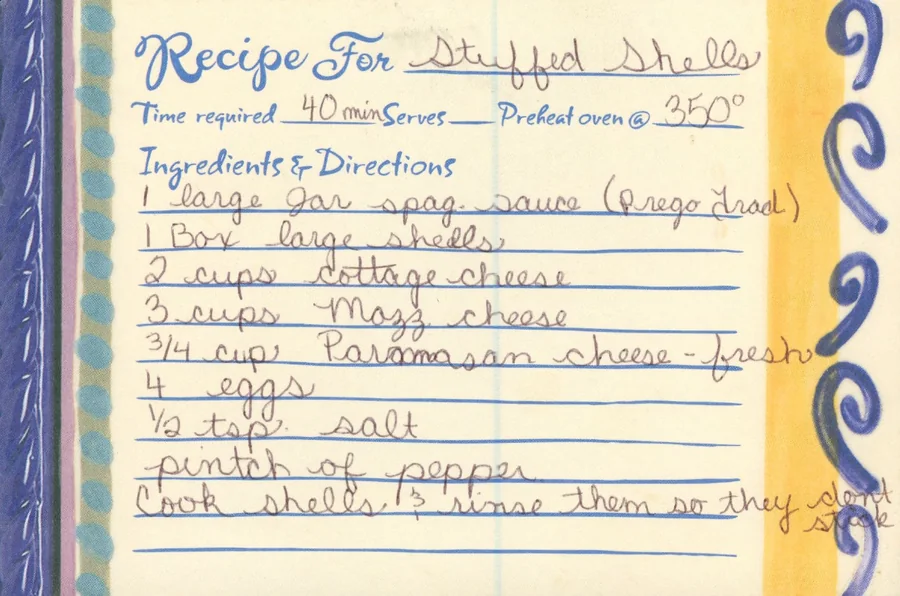 Recipe For Stuffed Shells
Time required 40 min Serves Preheat oven @ 350°
Ingredients & Directions
1 large Jar spag. sauce (Prego Trad)
1 Box large shells
2 cups cottage cheese
3 cups Mozz cheese
3/4 cup Paramasan cheese - fresh
4 eggs
1/2 tsp. salt
pintch of pepper
Cook shells & rinse them so they dont